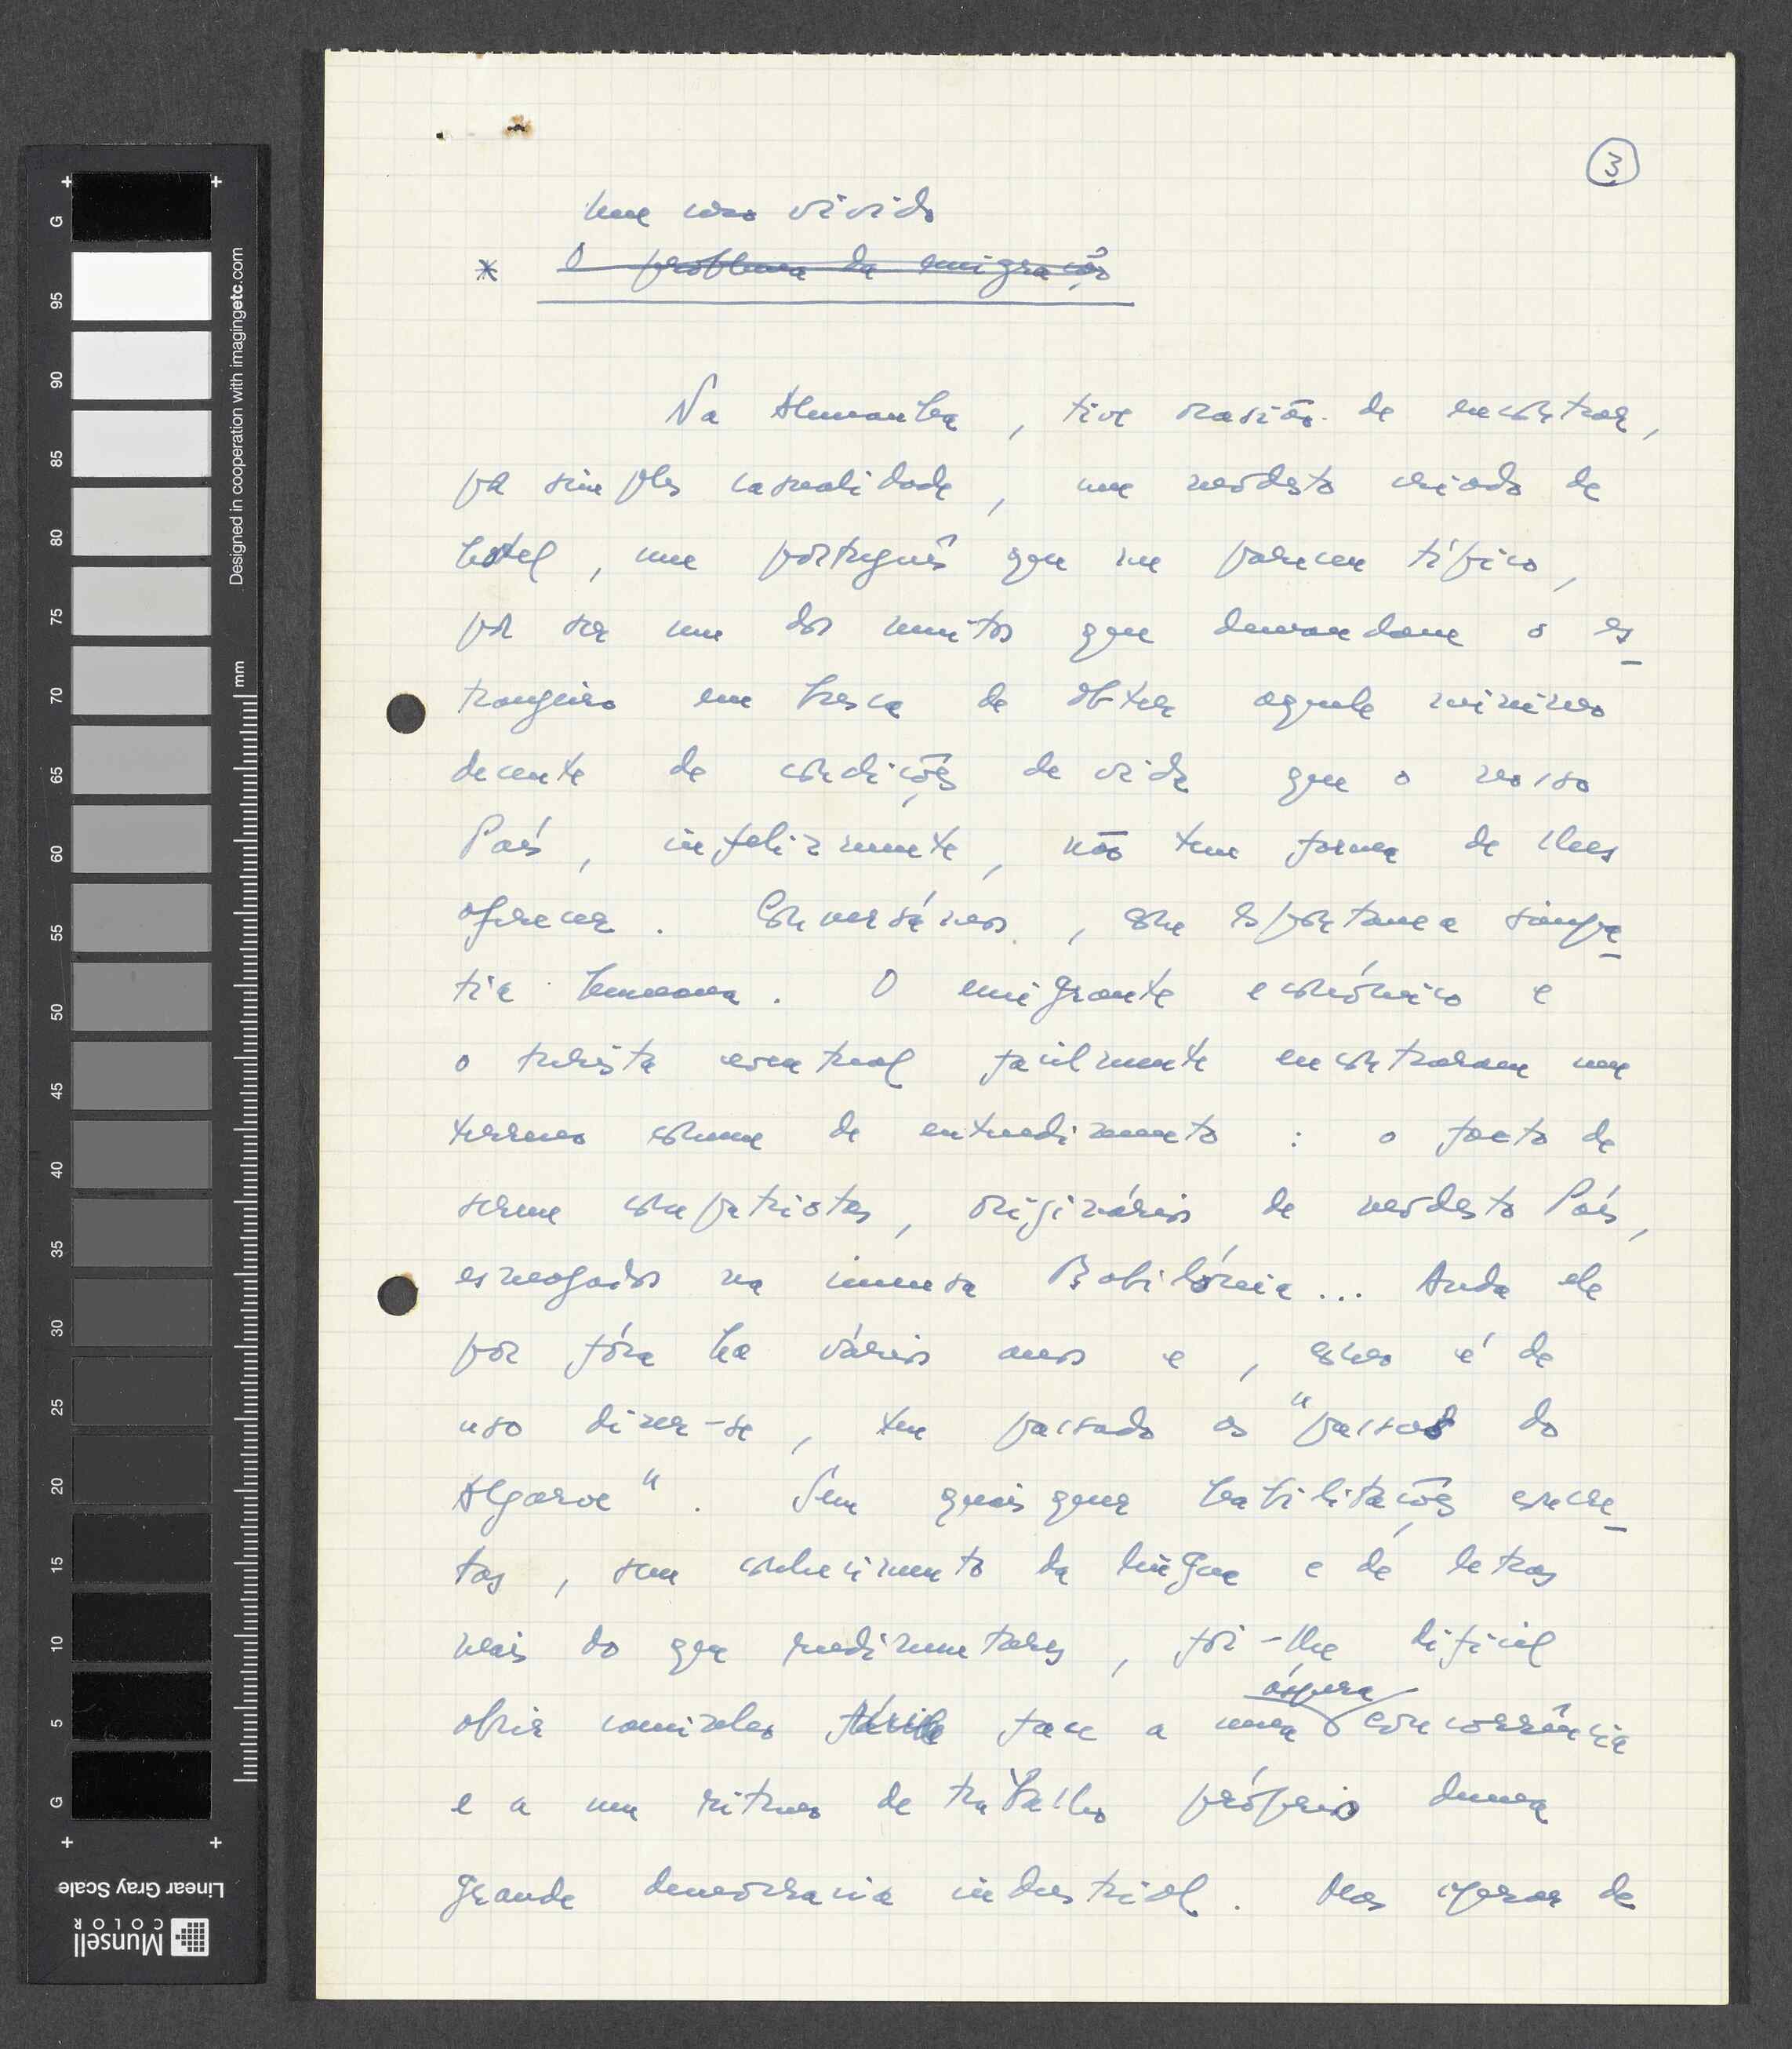 3
Um caso vivido
* O problema da emigração
Na Alemanha, tive ocasião de encontrar,
por simples casualidade, um modesto criado de
hotel, um português que me pareceu típico,
por ser um dos muitos que demandam o es-
trangeiro em busca de obter aquele mínimo
decente de condições de vida que o nosso
País, infelizmente, não tem forma de lhes
oferecer. Conversámos, com espontanea simpa-
tia humana. O emigrante económico e
o turista eventual facilmente encontraram um
terreno comum de entendimento: o facto de
serem compatriotas, originários de modesto País,
esmagados na imensa Babilónia... Anda ele
por fóra ha vários anos e, como é de
uso dizer-se, tem passado os "passos do
Algarve". Sem quaisquer habilitações concre-
tas, sem conhecimento da lingua e de letras
mais do que rudimentares, foi-lhe dificil
áspera
abrir caminho face a uma concorrência
e a um ritmo de trabalho próprio duma
grande democracia industrial. Mas apesar de
G
95
90
85
80
75
70
65
60
55
50
45
40
35
30
25
20
15
10
5
G
mm
Designed in cooperation with imagingetc.com
Linear Gray Scale
Munsell
COLOR